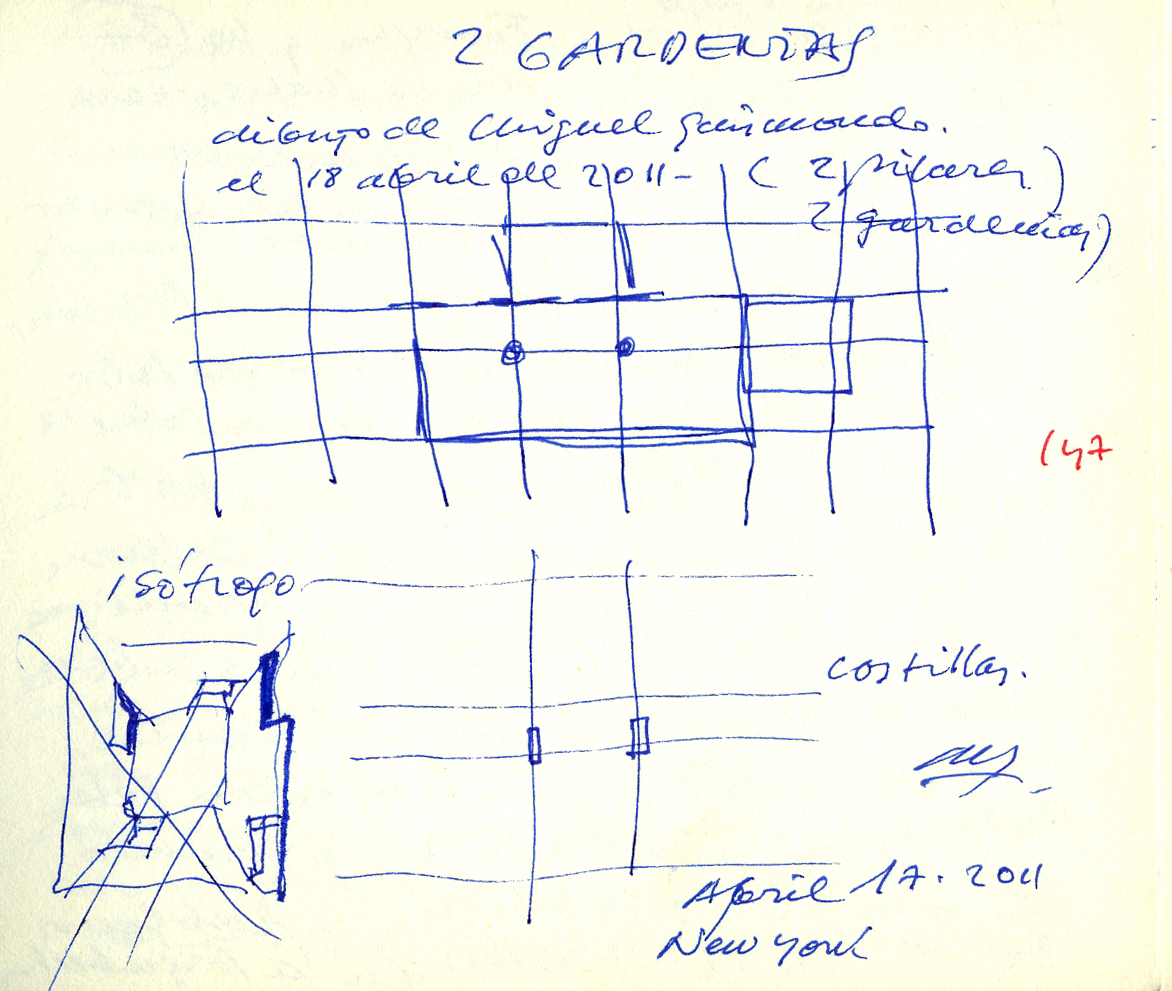 2 GARDENIAS
dibujo de Miguel Guismondo.
el 18 abril de 2011- ( 2 pilares )
2 gardenias)
147
isótropo
costillas.
April 17. 2011
New York